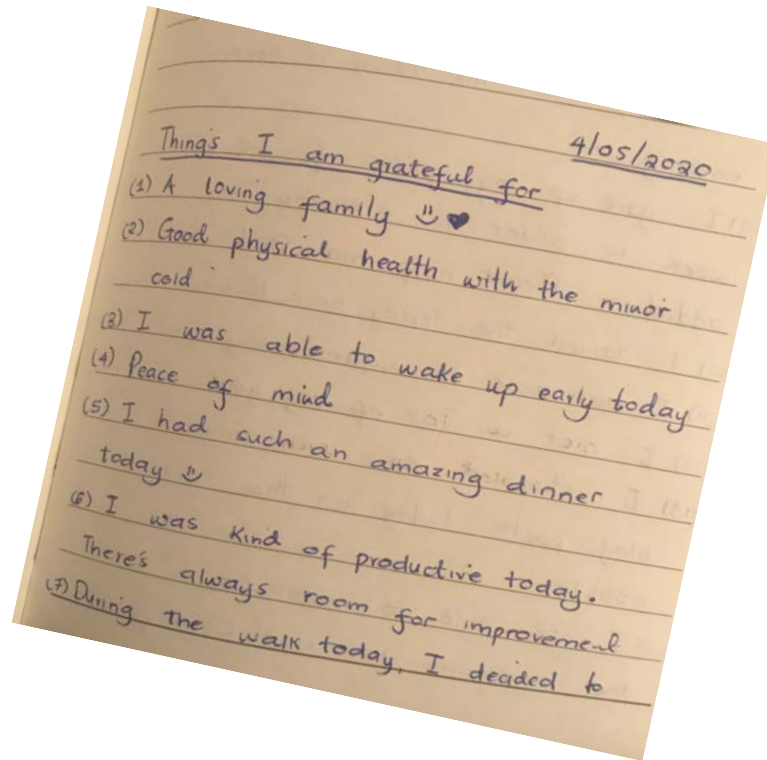 4/05/2020
Things I am grateful for
(1) A loving family
(2) Good physical health with the minor
cold
(3) I was able to wake up early today
(4) Peace of mind
(5) I had such an amazing dinner
today
(6) I was kind of productive today.
There's always room for improvement
(7) During the walk today, I decided to